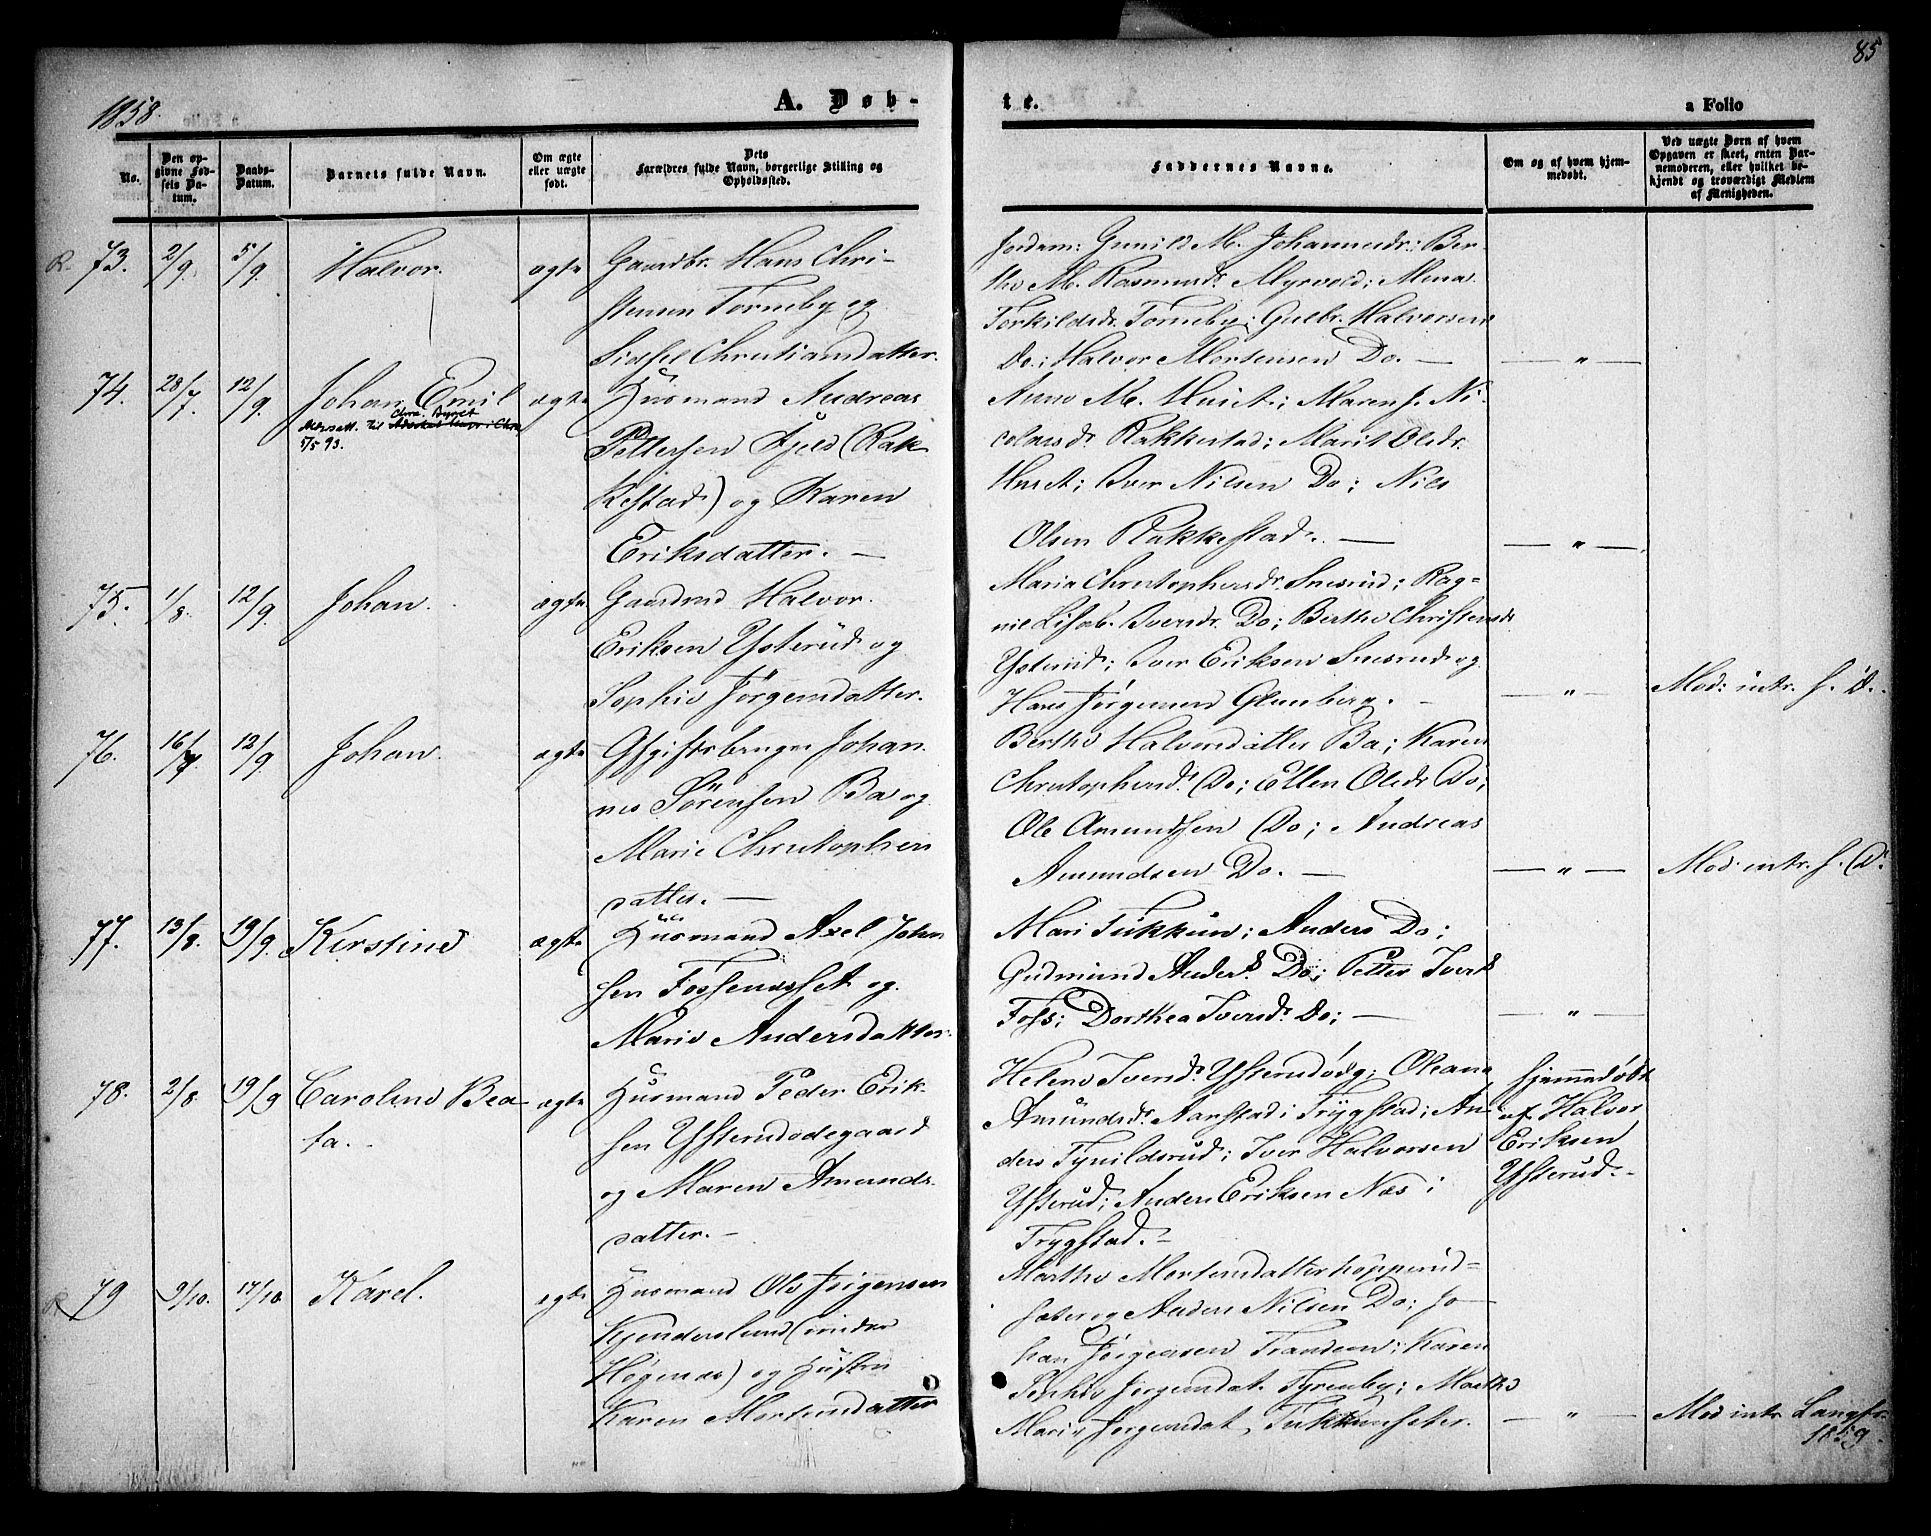 85
1858.
A. Døb-
te.
a Folio
No.
Den op-
givne Fød-
sels Da-
tum.
Daabs-
Datum.
Barnets fulde Navn.
Om ægte
eller uægte
født.
Dets
Forældres fulde Navn, borgerlige Stilling og
Opholdssted.
Faddernes Navne.
Om og af hvem hjem-
medøbt.
Ved uægte Børn af hvem
Opgaven er skeet, enten Bar-
nemoderen, eller hvilket be-
kjendt og troværdigt Medlem
af Menigheden.
R. 73. 2/9. 5/9. Halvor. ægte
Gaardbr. Hans Chri-
stensen Torneby og
Sidsel Christiansdatter.
Jordem: Gunild M. Johannesdr: Ber-
the M. Rasmusdr Myrvold; Mena
Torkildsdr. Torneby; Gulbr. Halvorsen
Do; Halvor Mortensen Do. —
— " —
74. 28/7. 12/9. Johan Emil ægte
Chra. Byret
Attesett. til
5/5 93.
Huusmand Andreas
Pettersen Fjeld (Rak-
kestad) og Karen
Eriksdatter. —
Anne M. Huset; Maren J. Ni-
colaisdr Rakkestad; Marit Olsdr.
Huset; Iver Nilsen Do; Nils
Olsen Rakkestad. —
— " —
75. 1/8. 12/9. Johan. ægte
Gaardmd Halvor
Eriksen Ysterud og
Sophie Jørgensdatter.
Maria Christophersdr Snesrud; Rag-
nil Lisab. Iversdr. Do; Berthe Christensdr
Ysterud; Iver Eriksen Snesrud og
Hans Jørgensen Glenberg. —
— " —
Mod: intr. s. D.
76. 16/7. 12/9. Johan. ægte
Afgiftsbruger Johan-
nes Sørensen Ba og
Marie Christophers
datter. —
Berthe Halvorsdatter Ba; Karen
Christophersdr. Do; Ellen Olsdr Do;
Ole Amundsen Do; Andreas
Amundsen Do. —
— " —
Mod. intr. s. D.
77. 13/8. 19/9. Kirstine ægte
Huusmand Axel John
sen Fossenesset og
Marie Andersdatter.
Mari Tukkun; Anders Do;
Gudmund Anders. Do; Petter Ivers.
Foss; Dorthea Iversdr. Do; —
— " —
78. 2/8. 19/9 Caroline Bea- ægte
ta. -
Huusmand Peder Erik-
sen Ysterudødegaard
og Maren Amunds-
datter. —
Helene Iversdr. Ysterudødg; Oleana
Amundsdr. Aarstad i Trygstad; An-
ders Tynildsrud; Iver Halvorsen
Ysterud; Anders Eriksen Næs i
Trygstad. —
Hjemmedøbt
af Halvor
Eriksen
Ysterud. -
R 79 9/10. 17/10 Karel. ægte
Huusmand Ole Jørgensen
Kjenderslund (under
Høgenæs) og Hustru
Karen Mortensdatter
Marthe Mortensdatter Kopperud-
sæter og Anders Nilsen Do; Jo-
han Jørgensen Trandem; Karen
Sophie Jørgensdat. Tyrenby; Marthe
Marie Jørgensdat. Tukkunseter.
— " —
Mod intr Langfr.
1859.